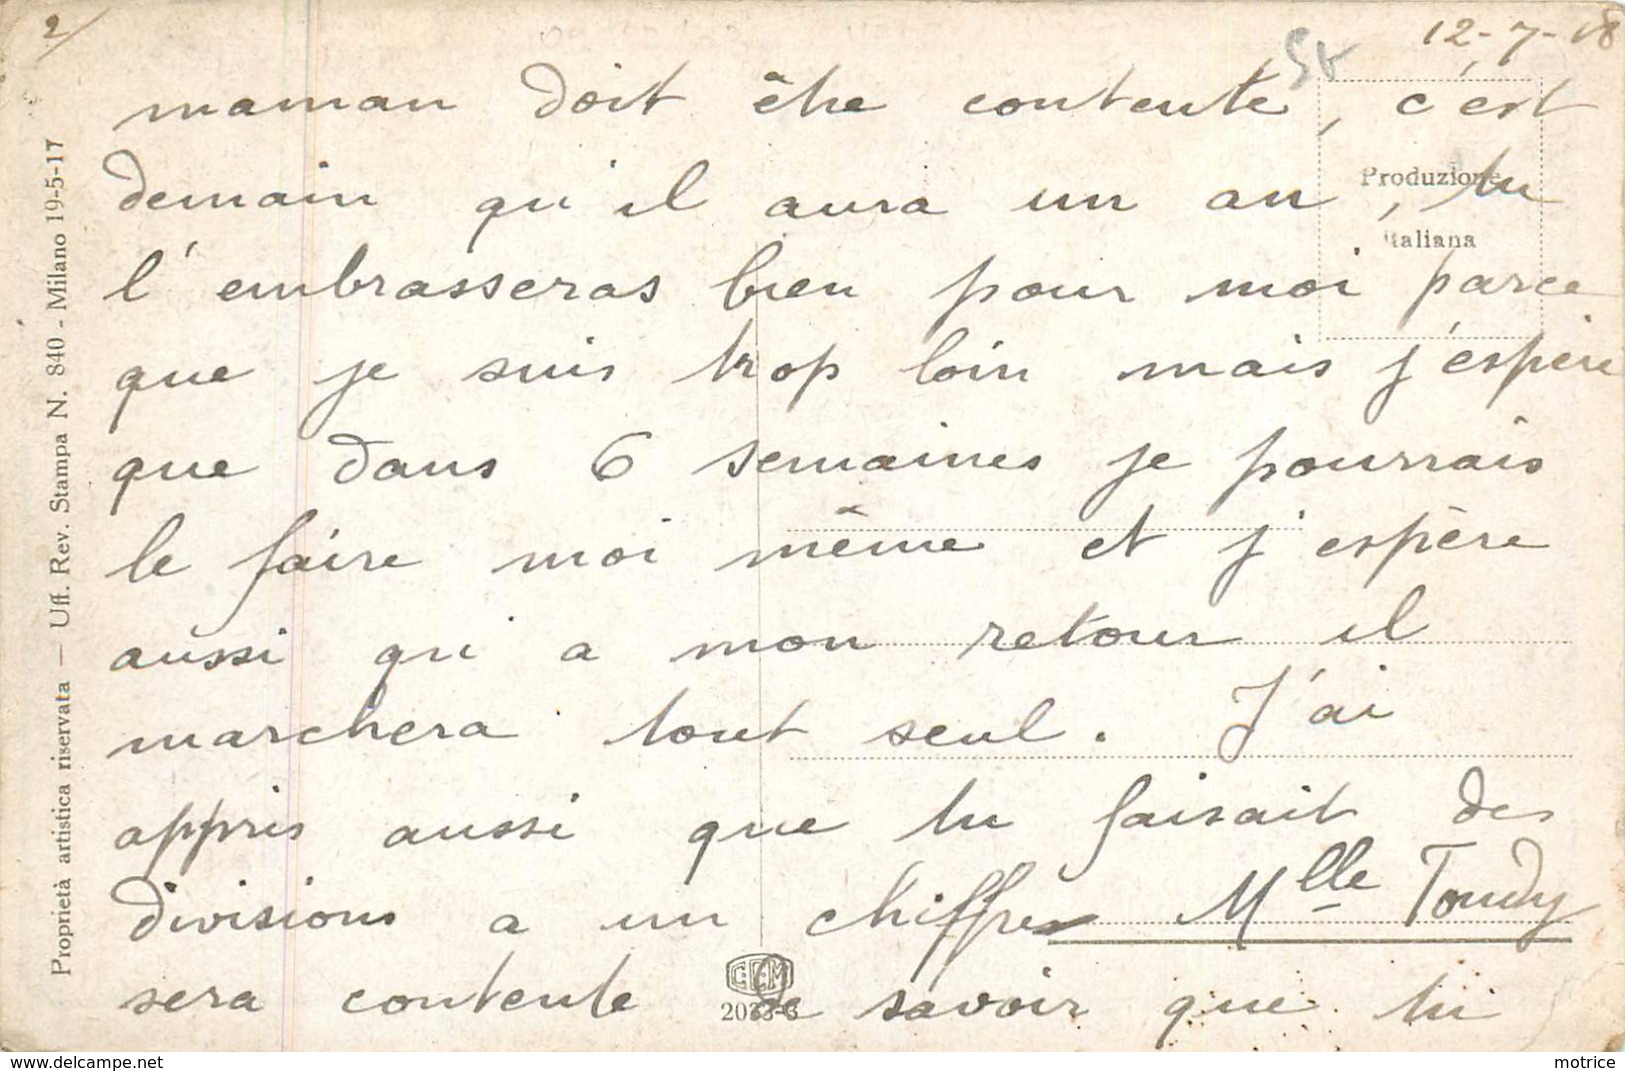 2/
12-7-18
maman doit être contente, c'est
demain qu'il aura un an, tu
l'embrasseras bien pour moi parce
que je suis trop loin mais j'espère
que dans 6 semaines je pourrais
le faire moi même et j'espère
aussi qu'i a mon retour il
marchera tout seul. J'ai
appris aussi que tu faisait des
divisions a un chiffre Mlle Toudy
sera contente de savoir que tu
Produzione
italiana
Proprietà artistica riservata — Uff. Rev. Stampa N. 840 - Milano 19-5-17
CCM
delcampe.net
motrice